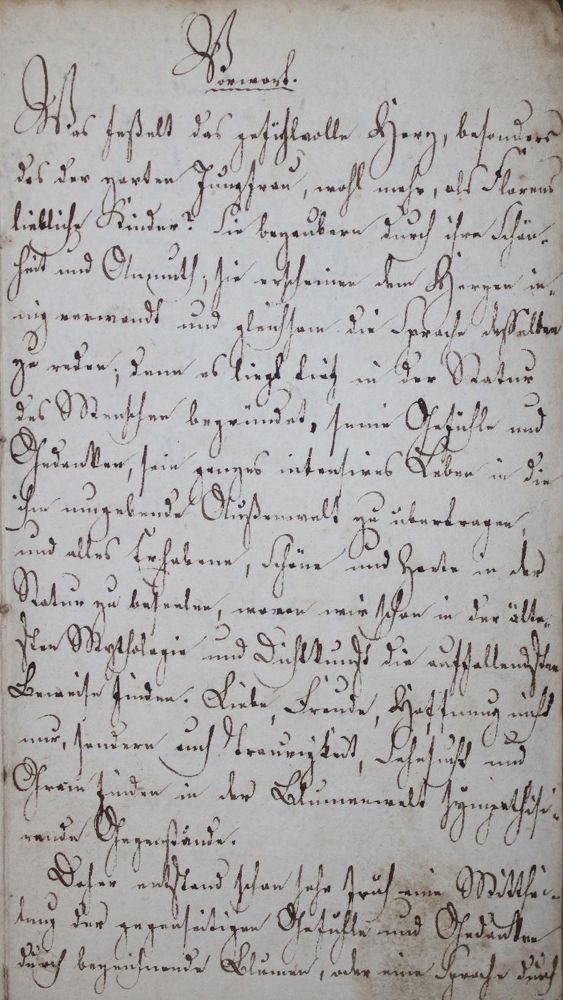 Vorwort.
Was feßelt das gefühlvolle Herz, besonders
das der zarten Jungfrau, wohl mehr, als Florens
liebliche Kinder? Sie bezaubern durch ihre Schön-
heit und Anmuth; sie erscheinen dem Herzen in-
nig verwandt und gleichsam die Sprache desselben
zu reden; denn es liegt tief in der Natur
des Menschen begründet, seine Gefühle und
Gedanken, sein ganzes intensives Leben in die
ihn umgebende Außenwelt zu übertragen,
und alles Erhabene, Schöne und Zarte in der
Natur zu beseelen, wovon wir schon in der älte-
sten Mythologie und Dichtkunst die auffallendsten
Beweise finden. Liebe, Freude, Hoffnung nicht
nur, sondern auch Traurigkeit, Sehnsucht und
Gram finden in der Blumenwelt sympathisi-
rende Gegenstände.
Daher entstand schon sehr früh eine Mitthei-
lung der gegenseitigen Gefühle und Gedanken
durch bezeichnende Blumen, oder eine Sprache durch